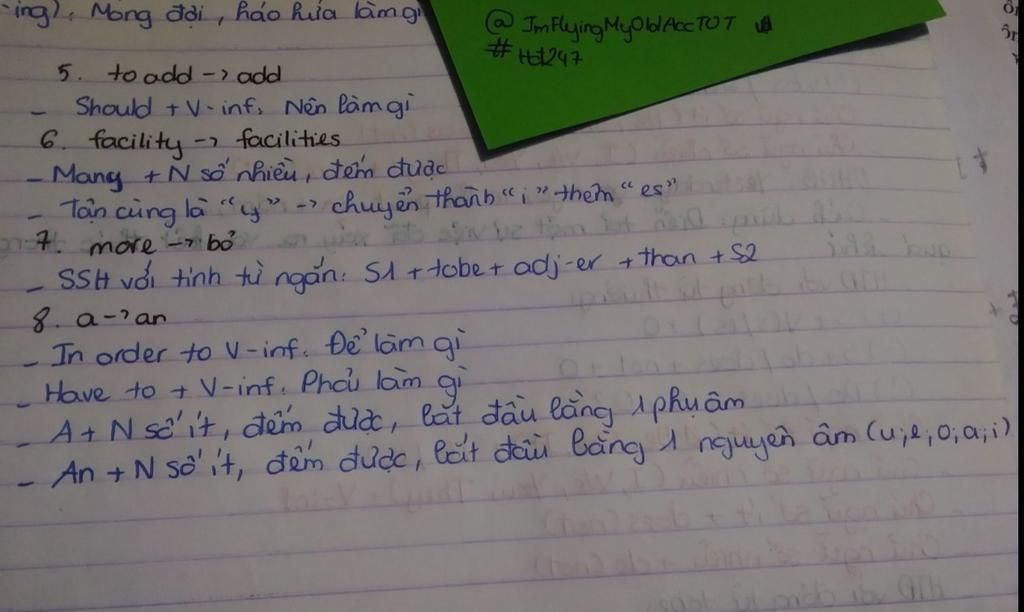 -ing). Mong đợi, háo hức làm gì
@ ImFlyingMyOldAccTOT
# tbt247
5. to add -> add
- Should + V-inf. Nên làm gì
6. facility -> facilities
- Many + N số nhiều, đếm được
- Tận cùng là "y" -> chuyển thành "i" thêm "es"
7. more -> bỏ
- SSH với tính từ ngắn: S1 + tobe + adj-er + than + S2
8. a -> an
- In order to V-inf. Để làm gì
- Have to + V-inf. Phải làm gì
- A + N số ít, đếm được, bắt đầu bằng 1 phụ âm
- An + N số ít, đếm được, bắt đầu bằng 1 nguyên âm (u,e,o,a,i)